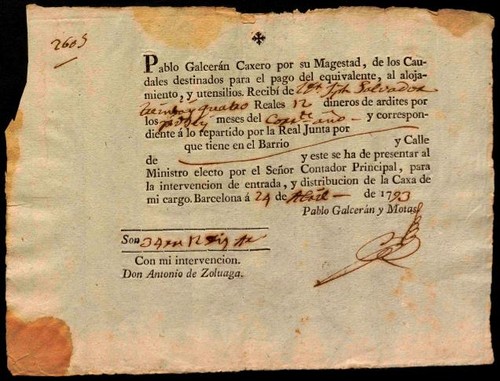 2603
Pablo Galcerán Caxero por su Magestad, de los Cau-
dales destinados para el pago del equivalente, al aloja-
miento, y utensilios. Recibí de Salvador
treinta y quatro Reales 12 dineros de ardites por
los meses del y correspon-
diente á lo repartido por la Real Junta por
que tiene en el Barrio y Calle
de y este se ha de presentar al
Ministro electo por el Señor Contador Principal, para
la intervencion de entrada, y distribucion de la Caxa de
mi cargo. Barcelona á 24 de Abril de 1793
Pablo Galcerán y Motas
Son 34
Con mi intervencion.
Don Antonio de Zoluaga.